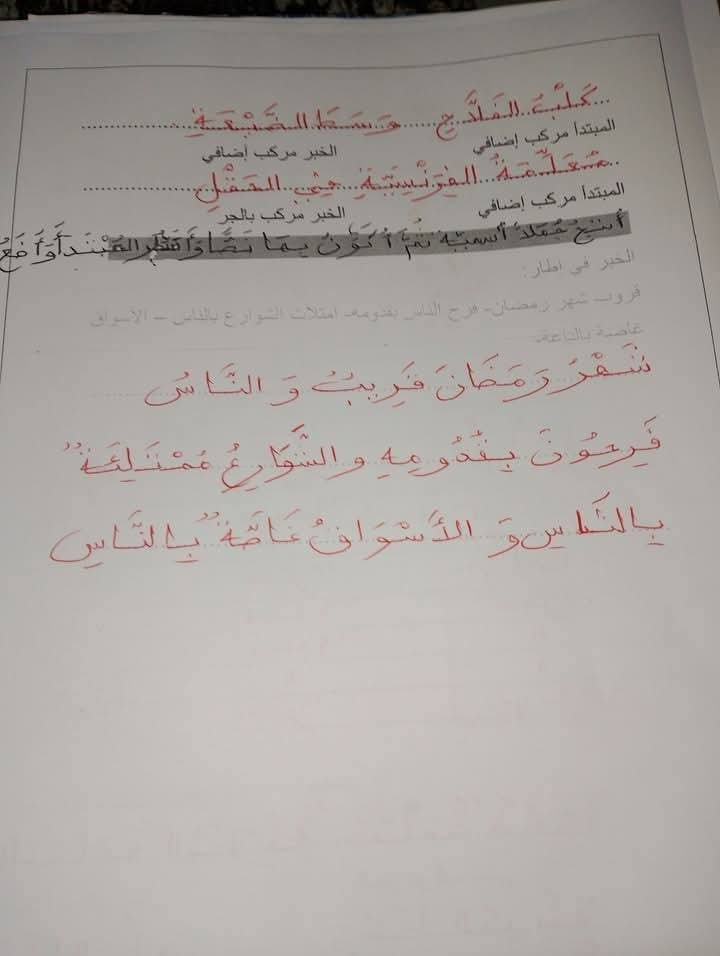 كَلْبُ الفَلَّاحِ وَسَطَ الضَّيْعَةِ
المبتدأ مركب إضافي الخبر مركب إضافي
مُعَلِّمَةُ الفِرَنْسِيَّةِ فِي الحَقْلِ
المبتدأ مركب إضافي الخبر مركب بالجر
أُنتج جُمَلاً أسميّة ثُمَّ أُكَوِّنُ بِهَا نَصًّا وَأُأَطِّر المُبْتَدَأَ وَأَضَعُ
الخبر في اطار:
قروب شهر رمضان- فرح الناس بقدومه- امتلات الشوارع بالناس – الأسواق
غاصة بالباعة.
شَهْرُ رَمَضَانَ قَرِيبٌ وَ النَّاسُ
فَرِحُونَ بِقُدُومِهِ و الشَّوَارِعُ مُمْتَلِئَةٌ
بِالنَّاسِ وَ الأَسْوَاقُ غَاصَّةٌ بِالنَّاسِ